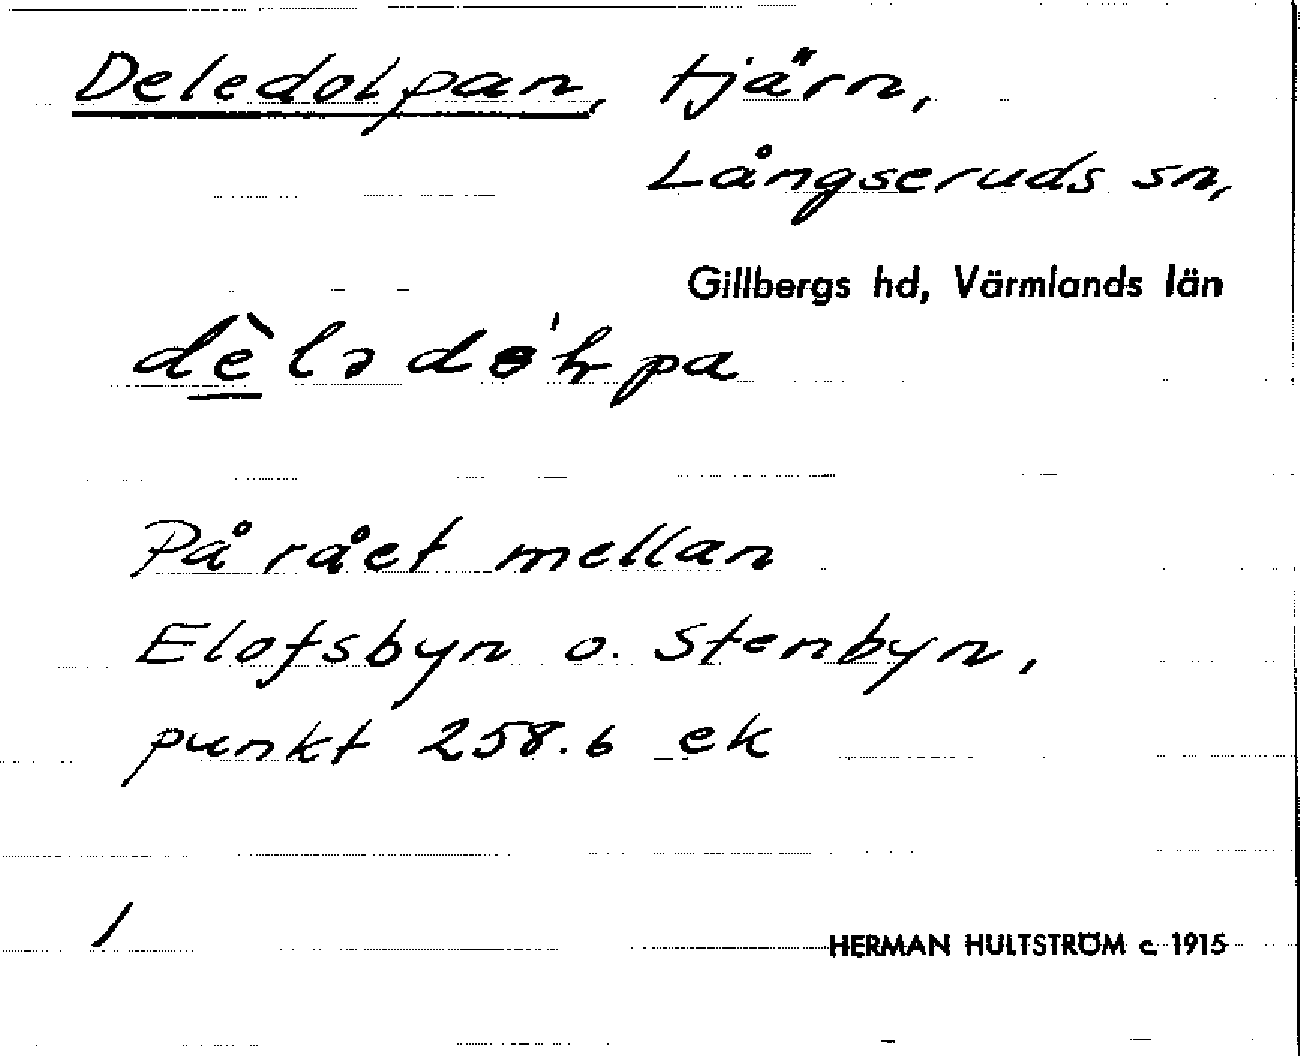 Deledolpan, tjärn,
Långseruds sn,
Gillbergs hd, Värmlands län
På rået mellan
Elofsbyn o. Stenbyn,
punkt 258.6 ek
1
HERMAN HULTSTRÖM c 1915